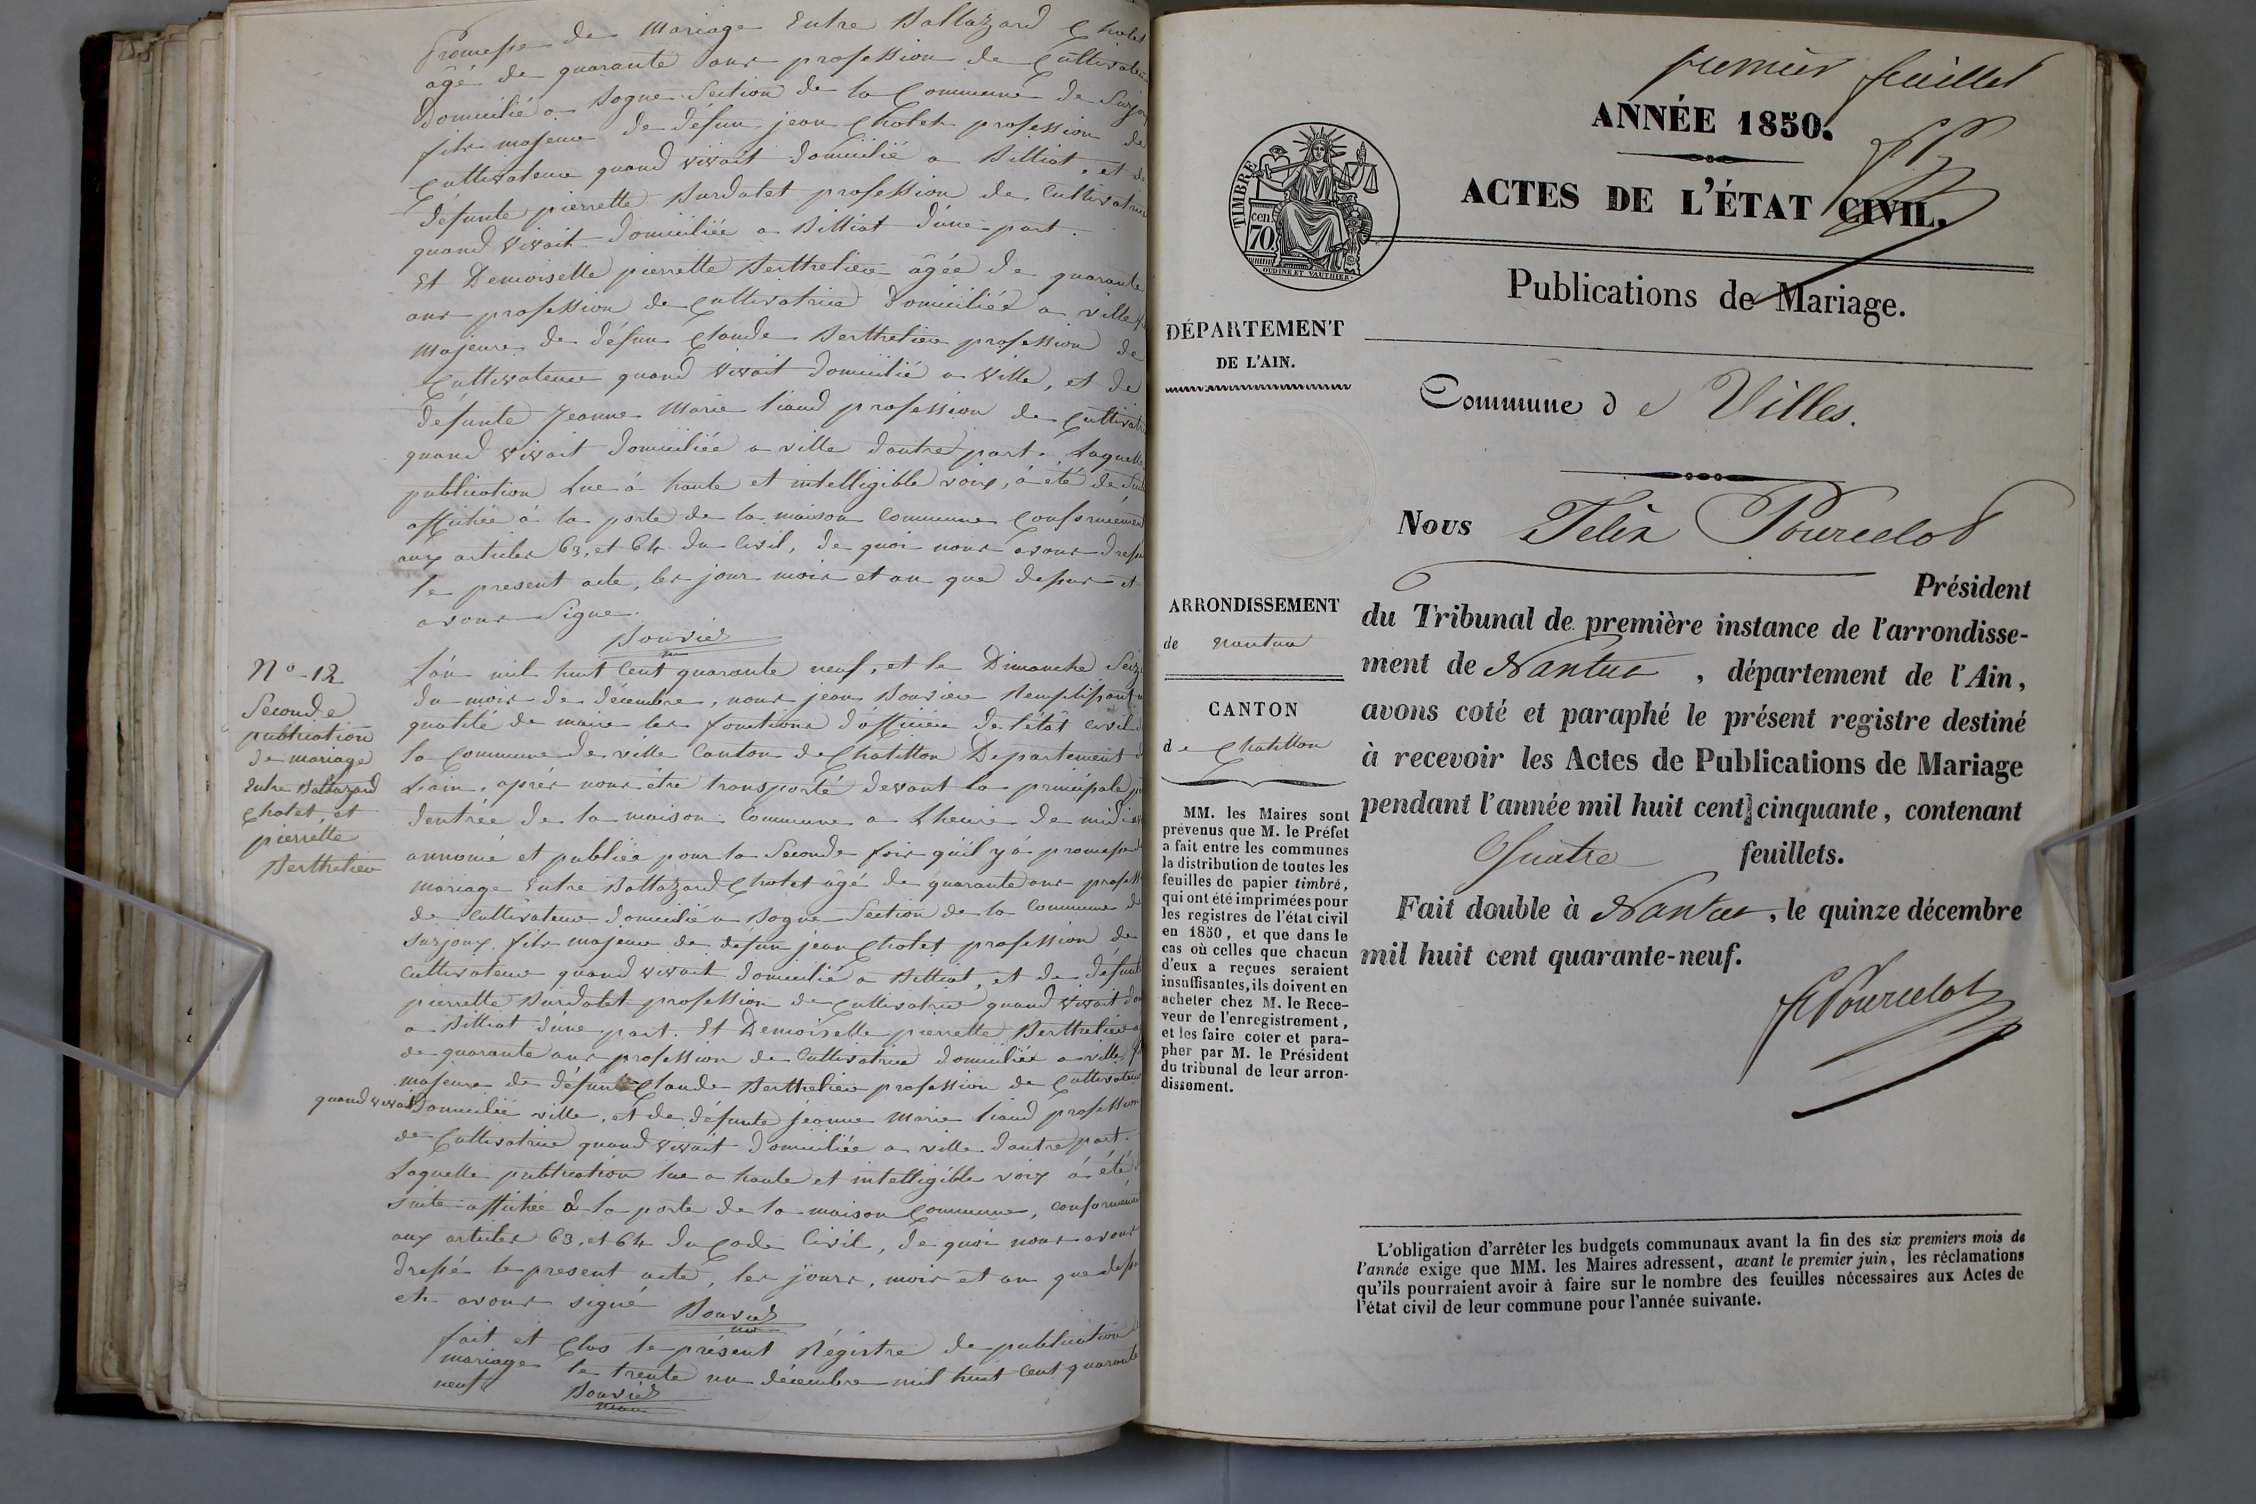 Promesse de mariage Entre Baltazard Cholet
âgé de quarante ans profession de Cultivateur
domicilié a Sogne Section de la Commune de Surjoux
fils majeur de défun jean Cholet profession de
Cultivateur quand vivait domicilié a Billiat, et de
défunte pierrette Burdalet profession de Cultivatrice
quand vivait domiciliée a Billiat d'une part.
Et Demoiselle pierrette Berthelier âgée de quarante
ans profession de Cultivatrice domiciliée a ville
majeure de défun Claude Berthelier profession de
Cultivateur quand vivait domicilié a Ville, et de
défunte Jeanne Marie liaud profession de Cultivatrice
quand vivait domiciliée a ville dautre part. Laquelle
publication Lue à haute et intelligible voix, à été de suite
affichée à la porte de la maison Commune Conformément
aux articles 63, et 64 du Civil, de quoi nous avons dressé
le present acte, les jour mois et an que dessus et
avons Signé.
Bouvier
N° 12
Seconde
publication
de mariage
Entre Baltazard
Cholet, et
pierrette
Berthelier
L'an mil huit Cent quarante neuf, et le Dimanche Seize
du mois de décembre, nous jean Bouvier Remplissant
qualité de maire les fonctions d'officier de l'état civil
la Commune de ville Canton de Chatillon Departement
Lain, après nous être transporté devant la principale
dentrée de la maison Commune a Lheure de midi
annoncé et publiée pour la Seconde fois qu'il y à promesse
mariage Entre Baltazard Cholet âgé de quarante ans profess
de Cultivateur domicilié a Sogne Section de la Commune de
Surjoux, fils majeur de défun jean Cholet profession de
Cultivateur quand vivait domicilié a Billiat, et de défunte
pierrette Burdalet profession de Cultivatrice quand vivait
a Billiat d'une part. Et Demoiselle pierrette Berthelier
de quarante ans profession de Cultivatrice domiciliée a ville
majeure de défunt Claude Berthelier profession de Cultivateur
quand vivait domicilié ville, et de défunte jeanne Marie liaud profession
de Cultivatrice quand vivait domiciliée a ville dautre part.
Laquelle publication lue a haute et intelligible voix à été
suite affichée à la porte de la maison Commune, conformément
aux articles 63, et 64 du Code Civil, de quoi nous avons
dressé le present acte, les jours, mois et an que dessus
et avons signé
Bouvier
fait et Clos le présent Régistre de publication
mariage le trente un décembre mil huit Cent quarante
neuf
Bouvier
maire
premier feuillet
ANNÉE 1850.
ACTES DE L'ÉTAT CIVIL.
TIMBRE
cen. 70
OUDINE ET VAUTHIER.
Publications de Mariage.
DÉPARTEMENT
DE L'AIN.
Commune de Villes.
Nous Félix Pourcelot
Président
du Tribunal de première instance de l'arrondisse-
ment de Nantua, département de l'Ain,
avons coté et paraphé le présent registre destiné
à recevoir les Actes de Publications de Mariage
pendant l'année mil huit cent cinquante, contenant
Quatre feuillets.
Fait double à Nantua, le quinze décembre
mil huit cent quarante-neuf.
F Pourcelot
ARRONDISSEMENT
de Nantua
CANTON
de Chatillon
MM. les Maires sont
prévenus que M. le Préfet
a fait entre les communes
la distribution de toutes les
feuilles de papier timbré,
qui ont été imprimées pour
les registres de l'état civil
en 1850, et que dans le
cas où celles que chacun
d'eux a reçues seraient
insuffisantes, ils doivent en
acheter chez M. le Rece-
veur de l'enregistrement,
et les faire coter et para-
pher par M. le Président
du tribunal de leur arron-
dissement.
L'obligation d'arrêter les budgets communaux avant la fin des six premiers mois de
l'année exige que MM. les Maires adressent, avant le premier juin, les réclamations
qu'ils pourraient avoir à faire sur le nombre des feuilles nécessaires aux Actes de
l'état civil de leur commune pour l'année suivante.